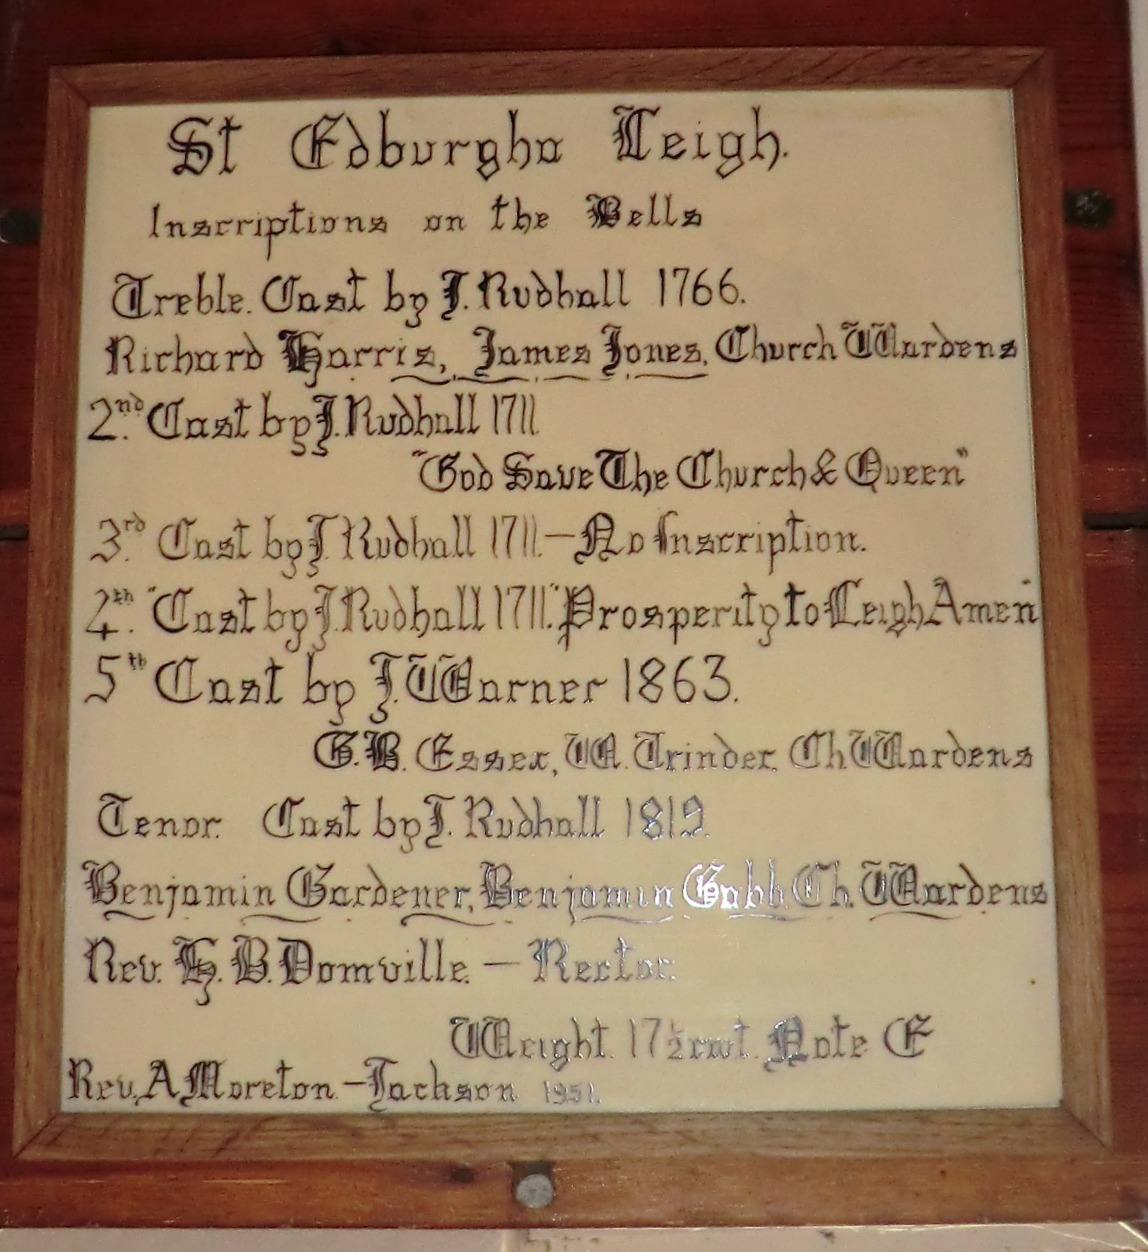 St Edburgha Leigh.
Inscriptions on the Bells
Treble. Cast by J. Rudhall 1766.
Richard Harris, James Jones, Church Wardens
2nd. Cast by J. Rudhall 1711
"God Save The Church & Queen"
3rd. Cast by J. Rudhall 1711.—No Inscription.
4th. "Cast by J. Rudhall 1711." Prosperity to Leigh Amen"
5th Cast by J. Warner 1863.
G.B. Essex, W. Trinder, Ch Wardens
Tenor. Cast by J. Rudhall 1819.
Benjamin Gardener, Benjamin Gabb, Ch. Wardens
Rev. H. B. Domville. — Rector.
Weight. 17½ cwt. Note E
Rev. A Moreton-Jackson 1951.